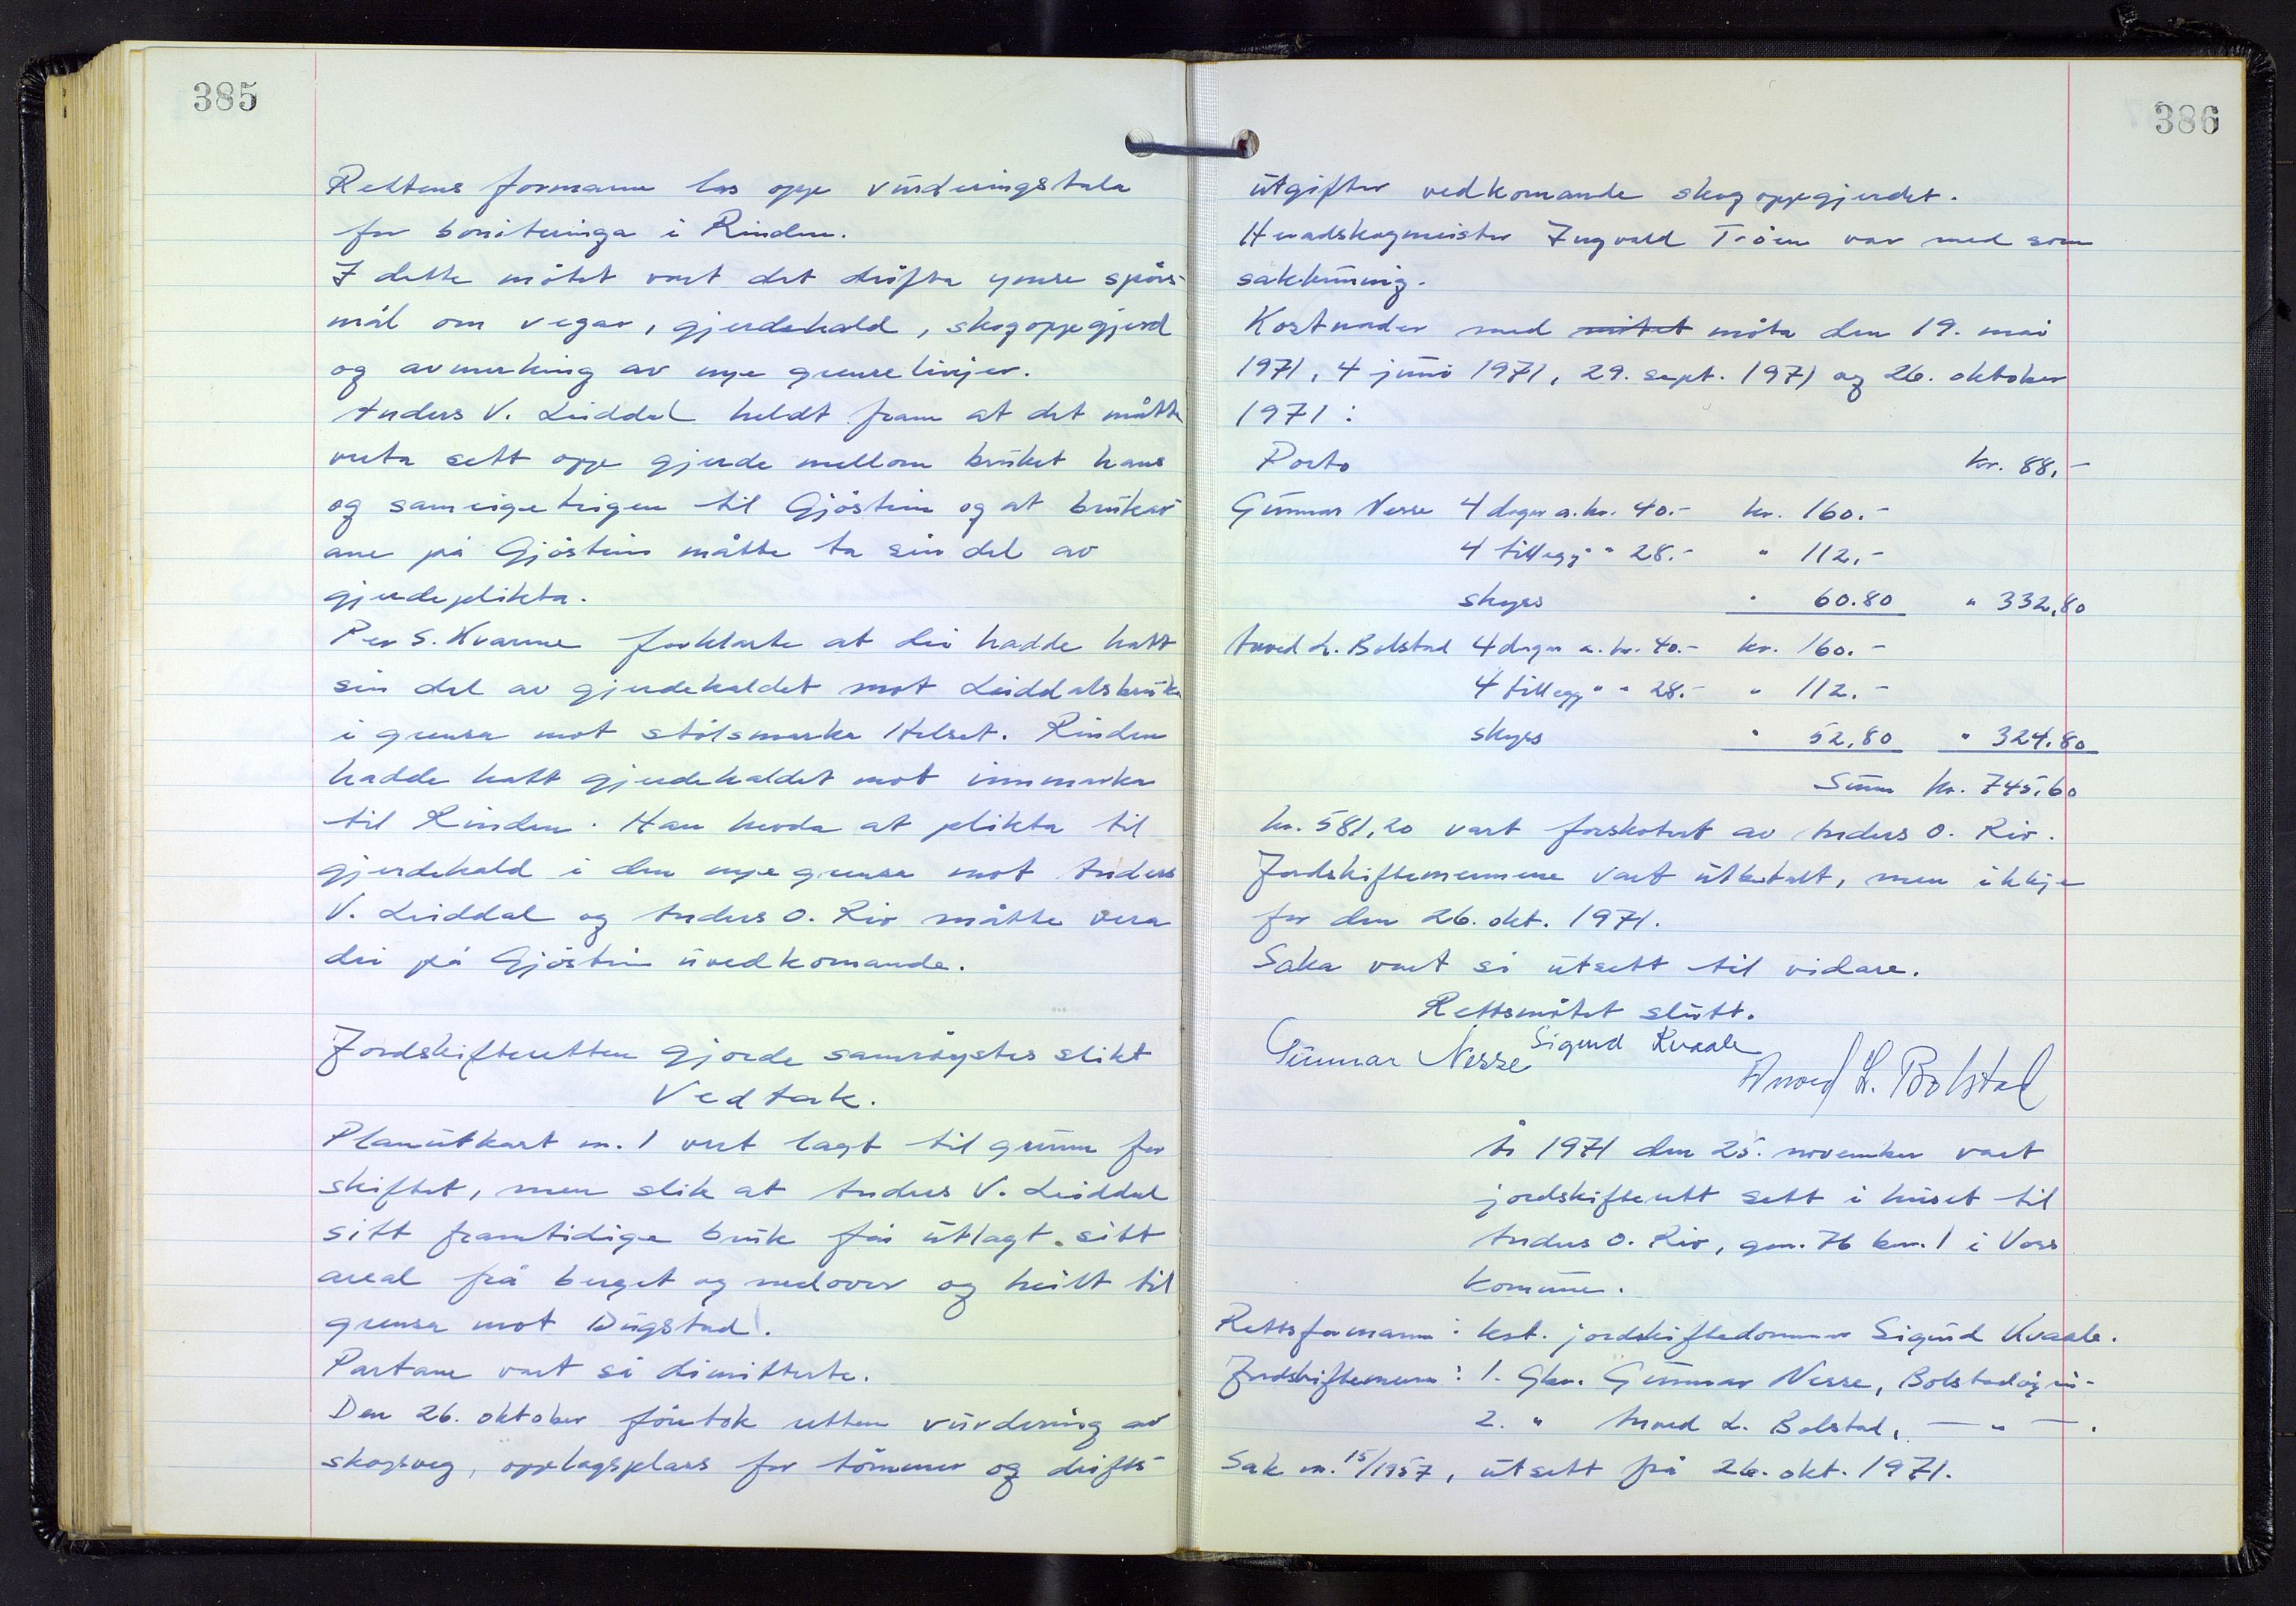 385
Rettens formann las opp vurderingstala
for boniteringa i Rinden.
I dette møtet vart det drøfta ymse spørs-
mål om vegar, gjerdehald, skogoppgjerd
og avmerking av nye grenselinjer.
Anders V. Liddal heldt fram at det måtte
verta sett opp gjerde mellom bruket hans
og sameigeteigen til Gjøstein og at brukar-
ane på Gjøstein måtte ta sin del av
gjerdeplikta.
Per S. Kvarme forklarte at dei hadde hatt
sin del av gjerdehaldet mot Liddalsbruka
i grensa mot stølsmarka Helset. Rinden
hadde hatt gjerdehaldet mot innmarka
til Rinden. Han hevda at plikta til
gjerdehald i den nye grensa mot Anders
V. Liddal og Anders O. Rio måtte vera
dei på Gjøstein uvedkomande.
Jordskifteretten gjorde samrøystes slikt
Vedtak.
Planutkast nr. 1 vert lagt til grunn for
skiftet, men slik at Anders V. Liddal
sitt framtidige bruk får utlagt sitt
areal frå berget og nedover og heilt til
grensa mot Dugstad.
Partane vart så dimitterte.
Den 26. oktober føretok retten vurdering av
skogsveg, opplagsplass for tømmer og drifts-
386
utgifter vedkomande skogoppgjerdet.
Heradskogmeister Ingvald Trøen var med som
sakkunnig.
Kostnader med møtet møta den 19. mai
1971, 4 juni 1971, 29. sept. 1971 og 26. oktober
1971:
Porto kr. 88,-
Gunnar Nesse 4 dagar a. kr. 40.- kr. 160.-
4 tillegg " " 28.- " 112.-
skyss " 60.80 " 332,80
Arved L. Bolstad 4 dagar a. kr. 40.- kr. 160.-
4 tillegg " " 28.- " 112.-
skyss " 52,80 " 324.80
Sum kr. 745,60
kr. 581,20 vart forskotert av Anders O. Rio.
Jordskiftemennene vart utbetalt, men ikkje
for den 26. okt. 1971.
Saka vart så utsett til vidare.
Rettsmøtet slutt.
Gunnar Nesse Sigurd Kvaale Arved L. Bolstad
År 1971 den 25. november vart
jordskifterett sett i huset til
Anders O. Rio, gnr. 76 bnr. 1 i Voss
kommune.
Rettsformann: kst. jordskiftedommar Sigurd Kvaale.
Jordskiftemenn: 1. Gbr. Gunnar Nesse, Bolstadøyri.
2. " Arved L. Bolstad, — " — .
Sak nr. 15/1957, utsett frå 26. okt. 1971.